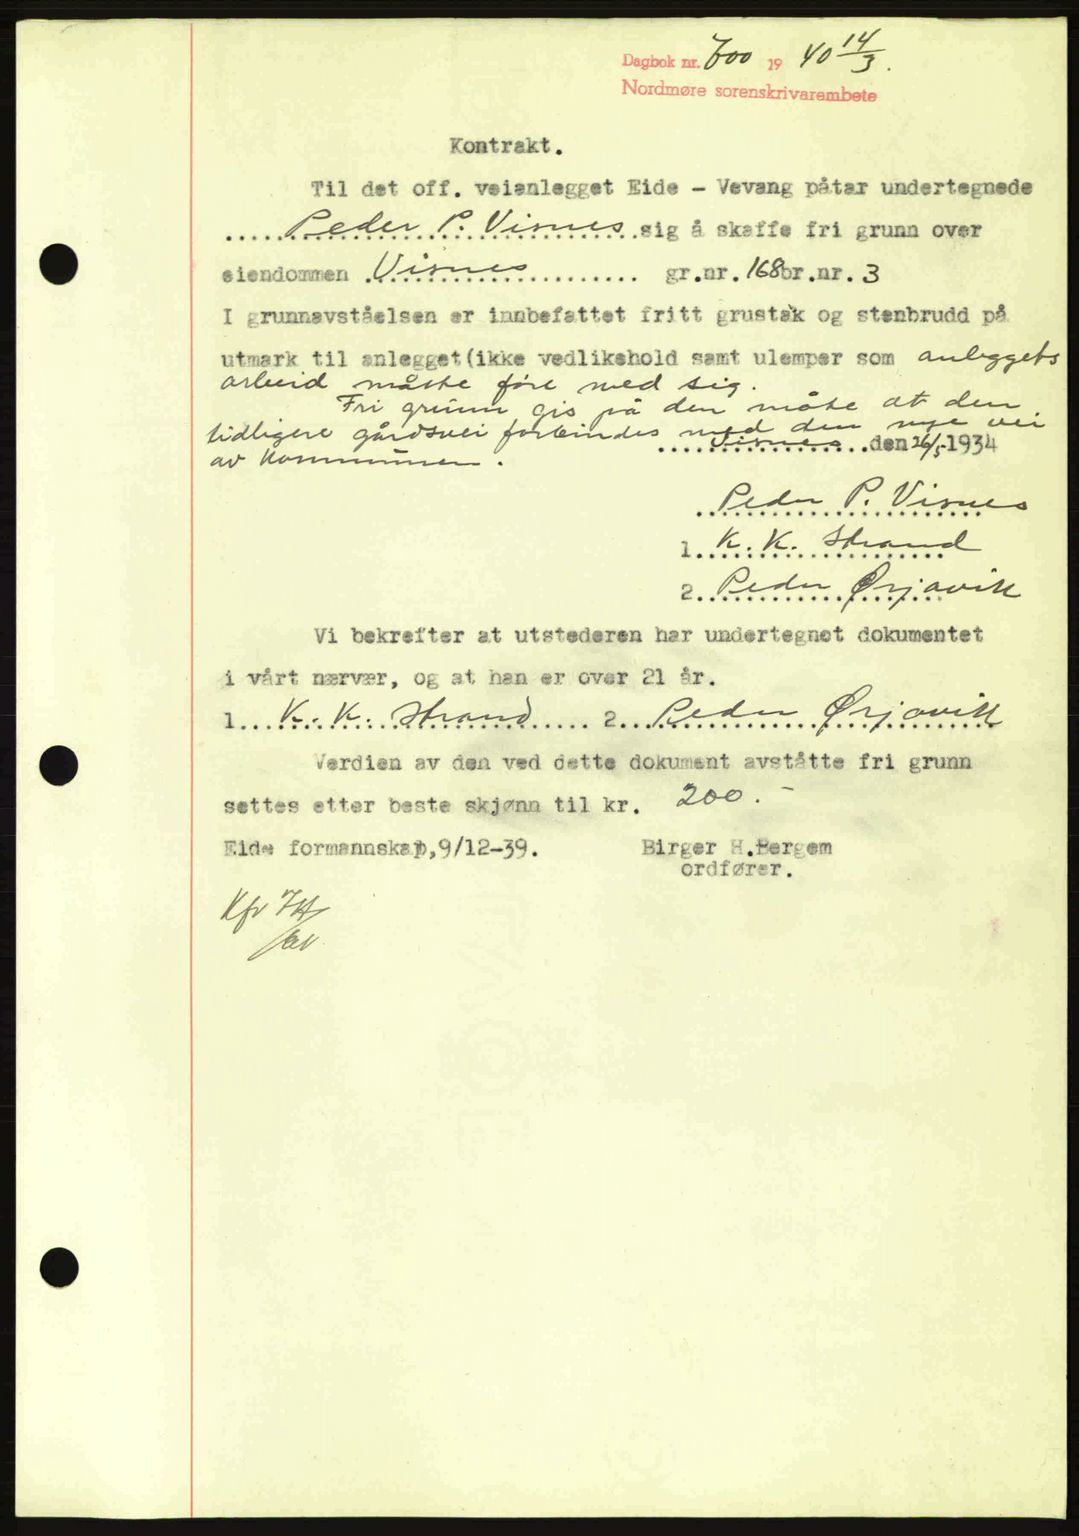 Dagbok nr. 600 1940 14/3.
Nordmøre sorenskrivarembete
Kontrakt.
Til det off. veianlegget Eide - Vevang påtar undertegnede
.....Peder P. Visnes.sig å skaffe fri grunn over
eiendommen .Visnes.......... gr.nr.168br.nr.3
I grunnavståelsen er innbefattet fritt grustak og stenbrudd på
utmark til anlegget(ikke vedlikehold samt ulemper som anleggets
arbeid måtte føre med sig.
Fri grunn gis på den måte at den
tidligere gårdsvei forbindes med den nye vei
av kommunen.
....Visnes....den 26/5-1934
Peder P. Visnes
1. K. K. Strand
2. Peder Ørjavik
Vi bekrefter at utstederen har undertegnet dokumentet
i vårt nærvær, og at han er over 21 år.
1...K. K. Strand..... 2...Peder Ørjavik
Verdien av den ved dette dokument avståtte fri grunn
settes etter beste skjønn til kr. 200.-
Eide formannskap,9/12-39. Birger H.Bergem
ordfører.